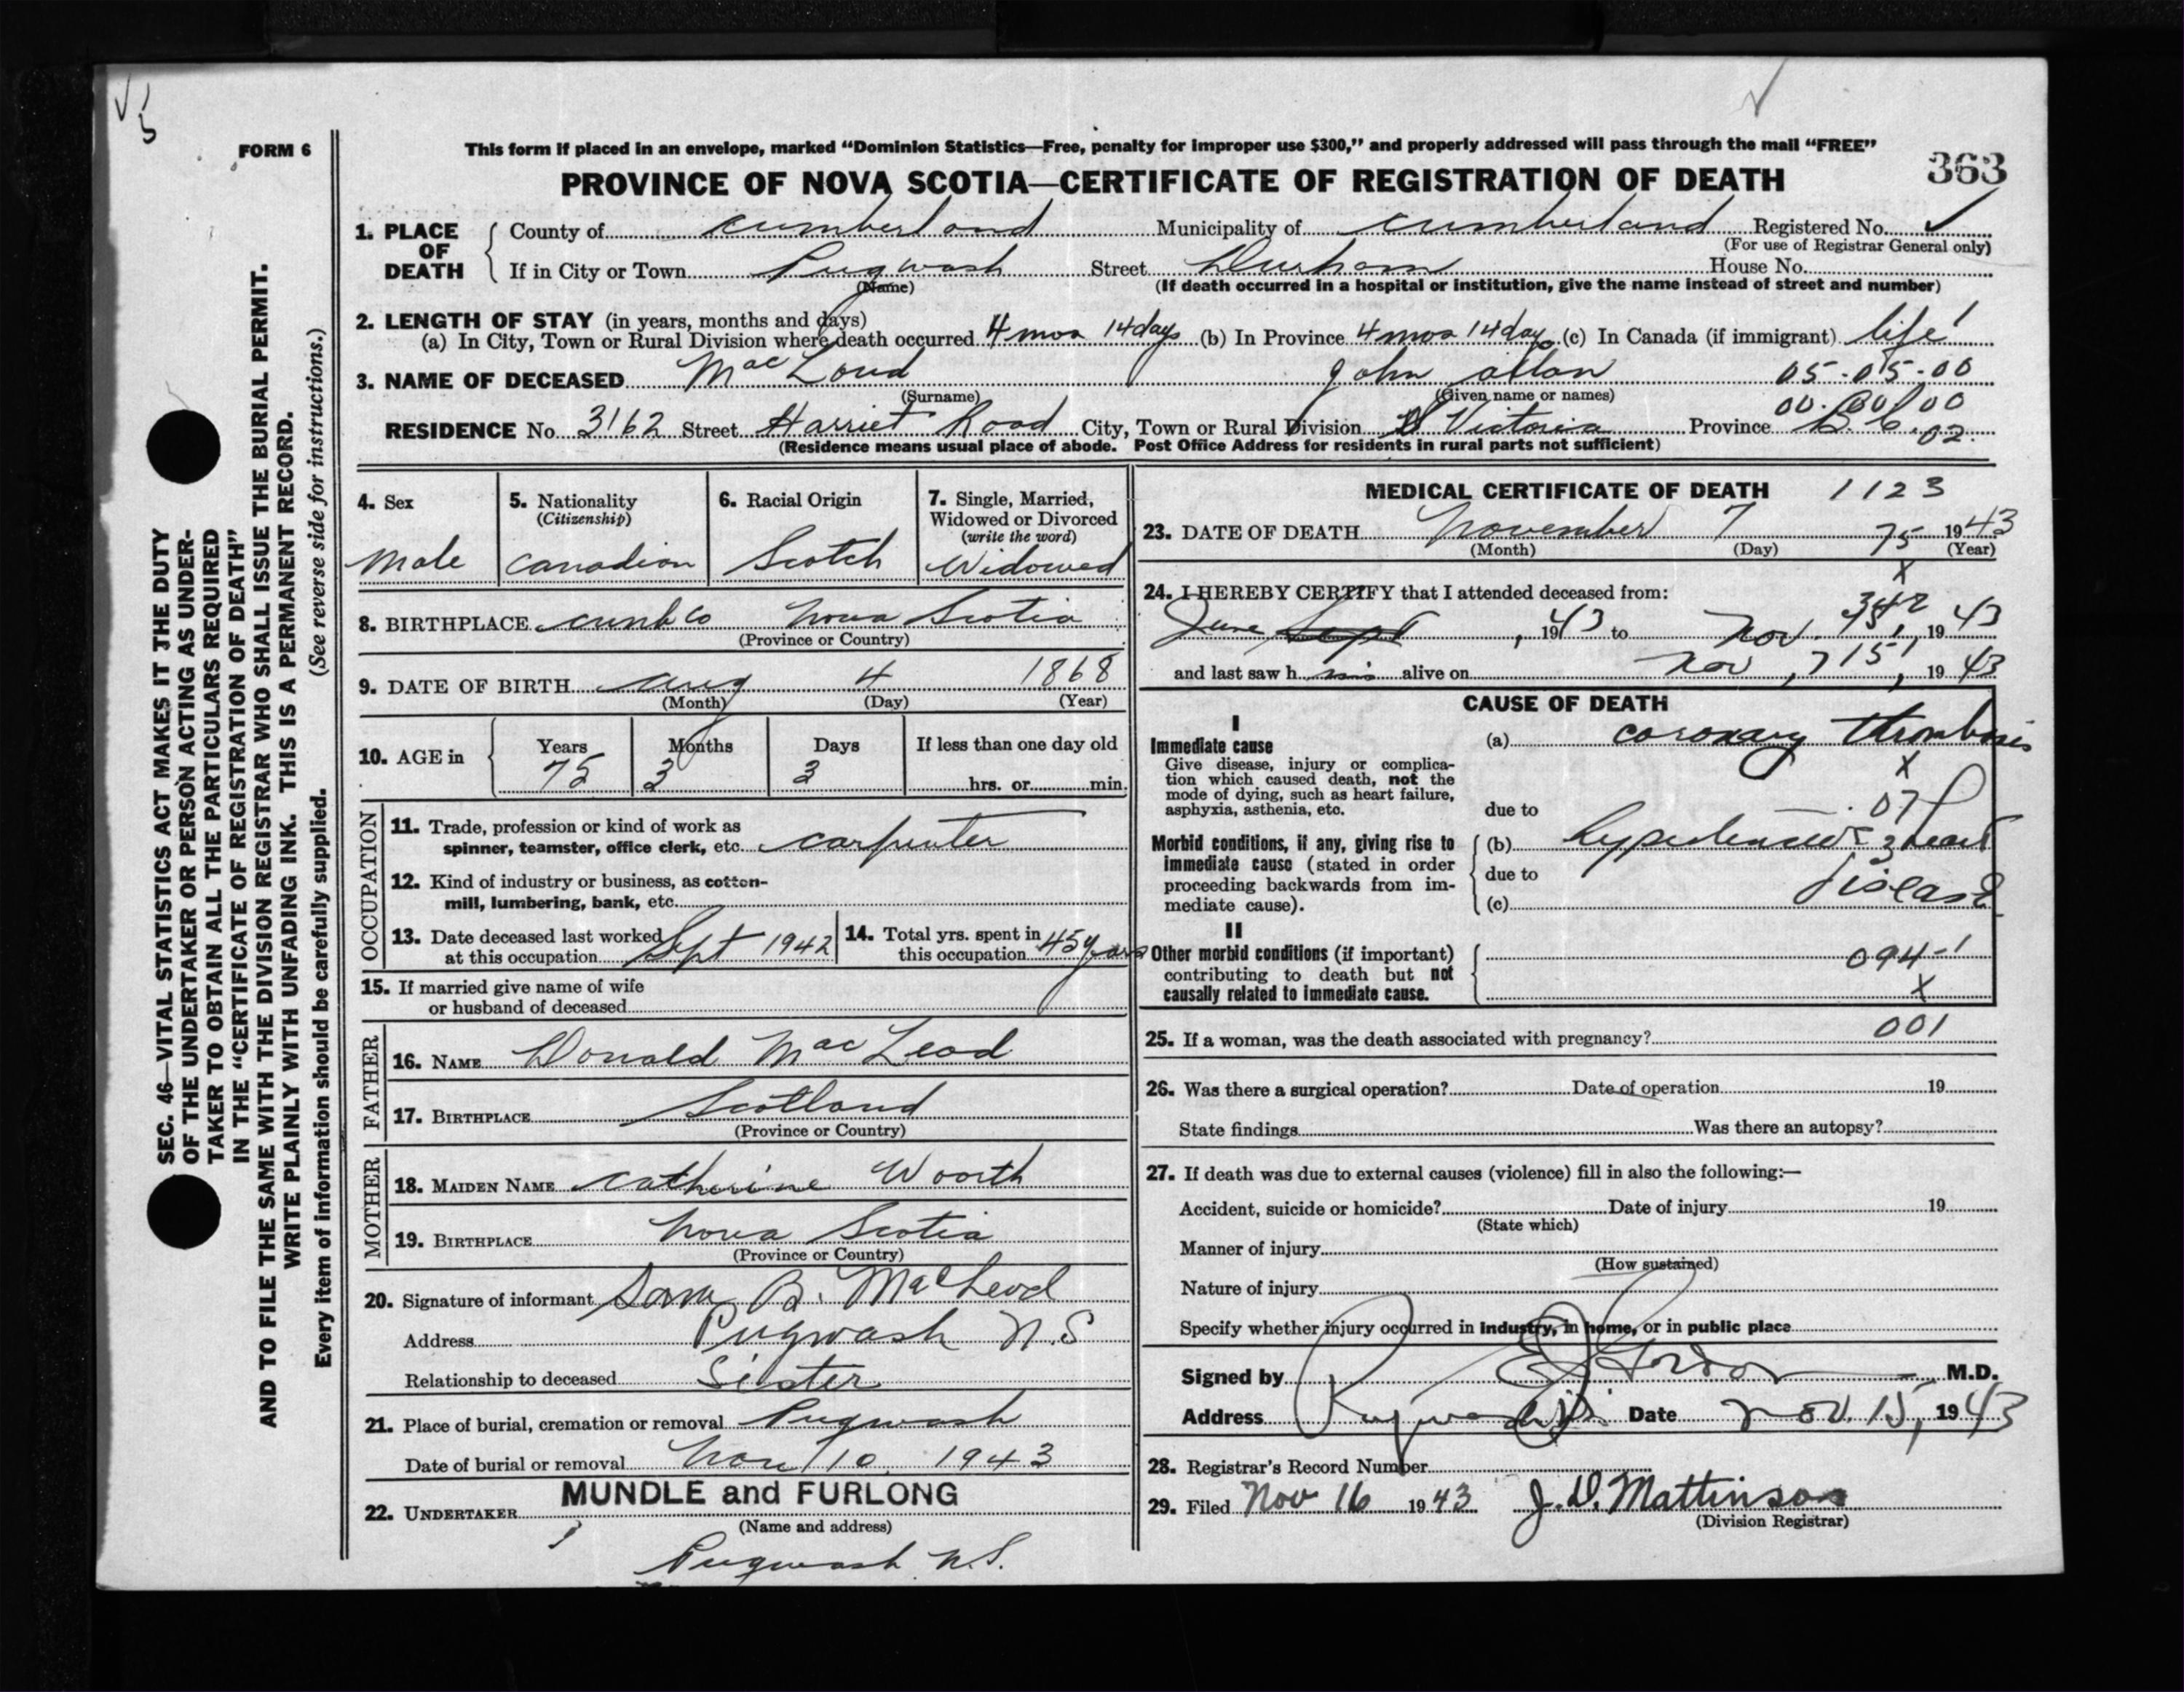 FORM 6
363
This form if placed in an envelope, marked “Dominion Statistics—Free, penalty for improper use $300,” and properly addressed will pass through the mail “FREE”
PROVINCE OF NOVA SCOTIA—CERTIFICATE OF REGISTRATION OF DEATH
SEC. 46—VITAL STATISTICS ACT MAKES IT THE DUTY
OF THE UNDERTAKER OR PERSON ACTING AS UNDER-
TAKER TO OBTAIN ALL THE PARTICULARS REQUIRED
IN THE “CERTIFICATE OF REGISTRATION OF DEATH”
AND TO FILE THE SAME WITH THE DIVISION REGISTRAR WHO SHALL ISSUE THE BURIAL PERMIT.
WRITE PLAINLY WITH UNFADING INK. THIS IS A PERMANENT RECORD.
Every item of information should be carefully supplied. (See reverse side for instructions.)
1. PLACE OF DEATH County of Cumberland Municipality of Cumberland Registered No.
(For use of Registrar General only)
If in City or Town Pugwash Street Durham House No.
(Name) (If death occurred in a hospital or institution, give the name instead of street and number)
2. LENGTH OF STAY (in years, months and days)
(a) In City, Town or Rural Division where death occurred 4 mos 14 days (b) In Province 4 mos 14 days (c) In Canada (if immigrant) life
3. NAME OF DECEASED MacLeod John Allan 05-05-00
(Surname) (Given name or names)
RESIDENCE No. 3162 Street Harriet Road City, Town or Rural Division Victoria Province B.C. 02
(Residence means usual place of abode. Post Office Address for residents in rural parts not sufficient)
4. Sex Male
5. Nationality (Citizenship) Canadian
6. Racial Origin Scotch
7. Single, Married, Widowed or Divorced (write the word) Widowed
8. BIRTHPLACE Cumb Co Nova Scotia
(Province or Country)
9. DATE OF BIRTH Aug 4 1868
(Month) (Day) (Year)
10. AGE in Years 75 Months 3 Days 3 If less than one day old hrs. or min.
OCCUPATION
11. Trade, profession or kind of work as
spinner, teamster, office clerk, etc. carpenter
12. Kind of industry or business, as cotton-
mill, lumbering, bank, etc.
13. Date deceased last worked
at this occupation Sept 1942
14. Total yrs. spent in
this occupation 45 years
15. If married give name of wife
or husband of deceased
FATHER
16. NAME Donald MacLeod
17. BIRTHPLACE Scotland
(Province or Country)
MOTHER
18. MAIDEN NAME Catherine Woorth
19. BIRTHPLACE Nova Scotia
(Province or Country)
20. Signature of informant Sara B. MacLeod
Address Pugwash N.S
Relationship to deceased Sister
21. Place of burial, cremation or removal Pugwash
Date of burial or removal Nov 10 1943
22. UNDERTAKER MUNDLE and FURLONG
(Name and address)
Pugwash N.S.
MEDICAL CERTIFICATE OF DEATH 1123
23. DATE OF DEATH November 7 75 1943
(Month) (Day) (Year)
24. I HEREBY CERTIFY that I attended deceased from:
June Sept, 1943 to Nov. 1943
and last saw him alive on Nov, 7 1943
CAUSE OF DEATH
I
Immediate cause
Give disease, injury or complica-
tion which caused death, not the
mode of dying, such as heart failure,
asphyxia, asthenia, etc.
(a) coronary thrombosis
due to
Morbid conditions, if any, giving rise to
immediate cause (stated in order
proceeding backwards from im-
mediate cause).
(b) hypertensive heart
due to disease
(c)
II
Other morbid conditions (if important)
contributing to death but not
causally related to immediate cause.
094-1
X
25. If a woman, was the death associated with pregnancy? 001
26. Was there a surgical operation? Date of operation 19
State findings Was there an autopsy?
27. If death was due to external causes (violence) fill in also the following:—
Accident, suicide or homicide? Date of injury 19
(State which)
Manner of injury
(How sustained)
Nature of injury
Specify whether injury occurred in industry, in home, or in public place
Signed by M.D.
Address Pugwash Date Nov. 15, 1943
28. Registrar's Record Number
29. Filed Nov 16 1943 J. D. Mattinson
(Division Registrar)